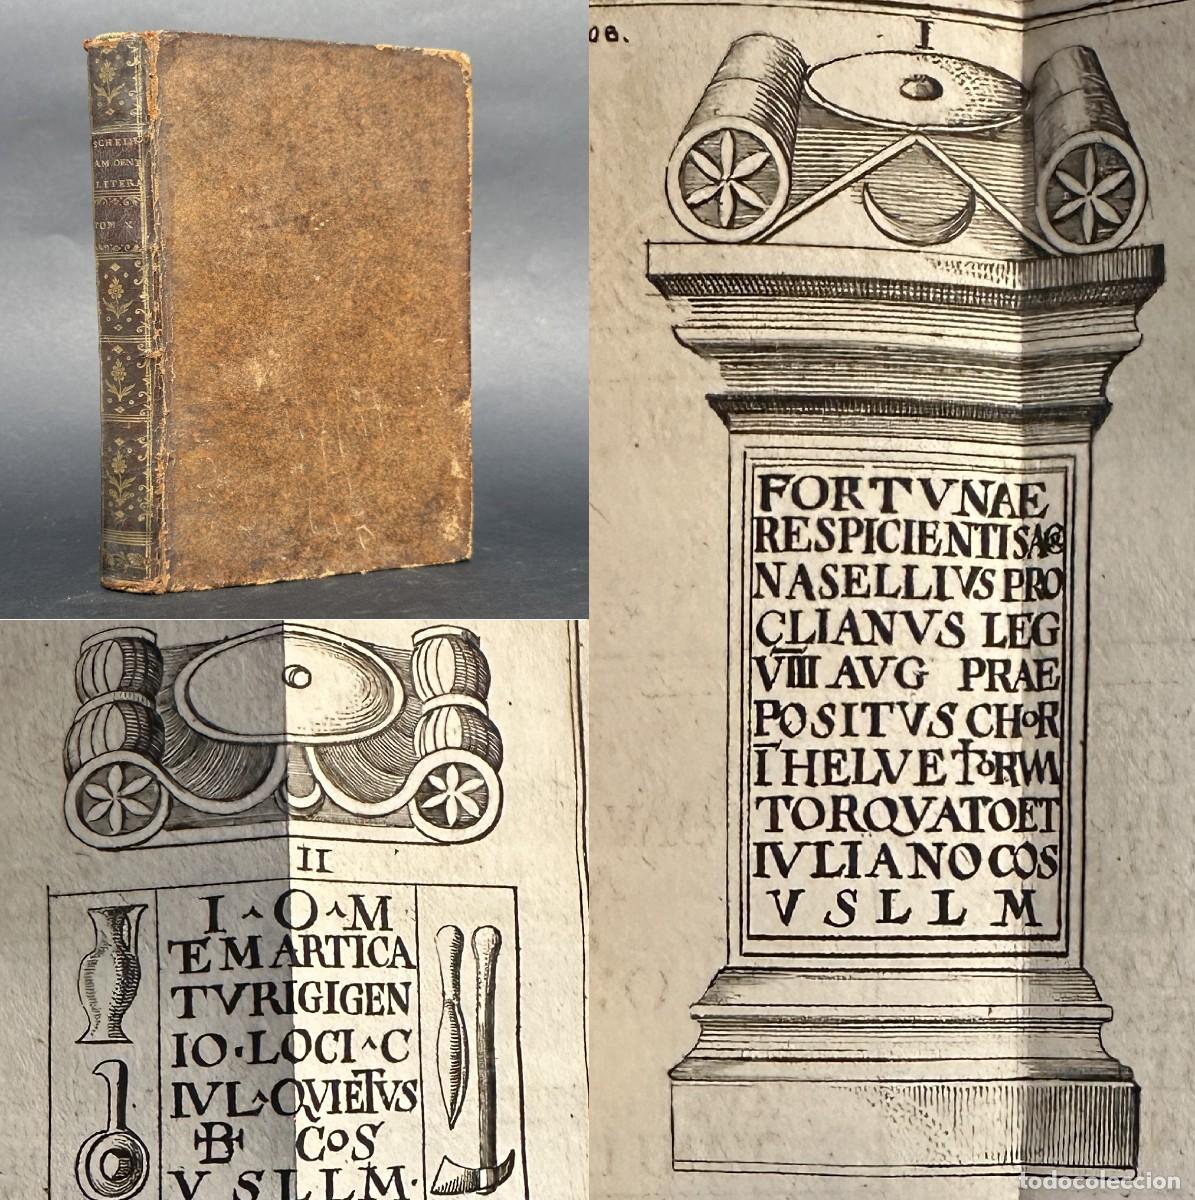 SCHELH
AMOENI
LITERA
TOM X
08.
I
FORTVNAE
RESPICIENTISACR
NASELLIVS PRO
CLIANVS LEG
VIII AVG PRAE
POSITVS CHOR
I HELVETORVM
TORQVATO ET
IVLIANO COS
V S L L M
II
I O M
EMARTICA
TVRIGIGEN
IO LOCI C
IVL QVIETVS
BF COS
V S L L M
todocoleccion